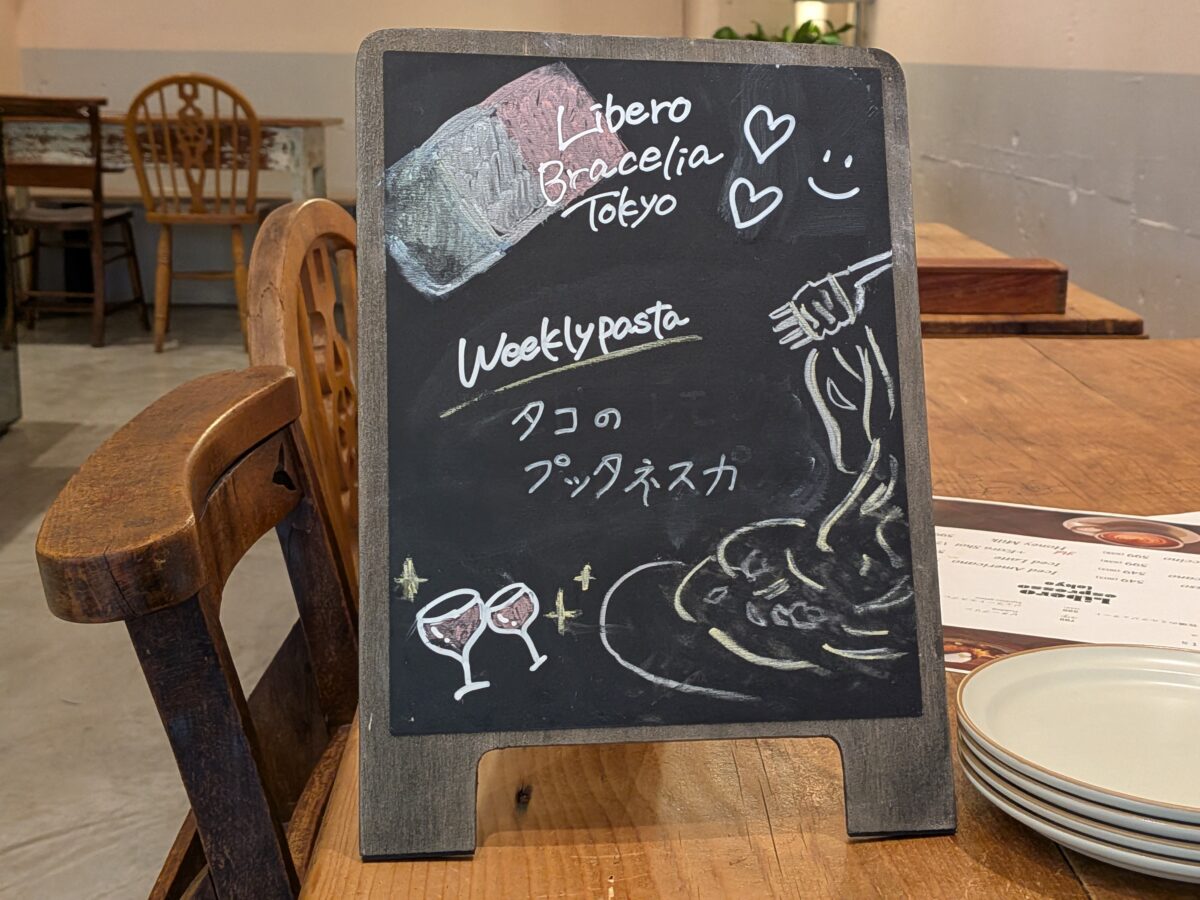 Libero
Bracelia
Tokyo
Weekly pasta
タコの
プッタネスカ
Libero
espresso
tokyo
Iced Americano
Iced Latte
+Extra Shot
Honey Milk